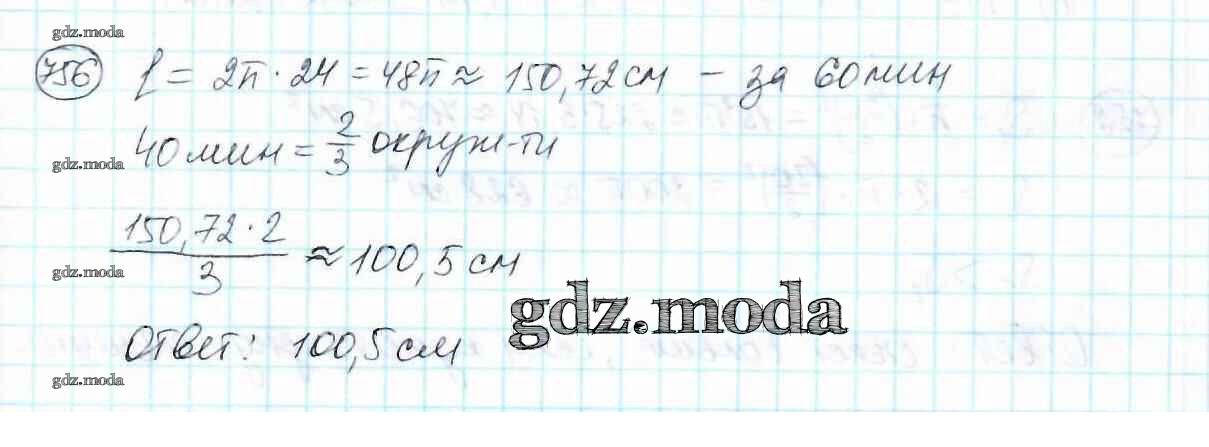 gdz.moda
756 l = 2π · 24 = 48π ≈ 150,72 см – за 60 мин
40 мин = 2/3 окруж-ти
gdz.moda
150,72 · 2 / 3 ≈ 100,5 см
gdz.moda
gdz.moda
Ответ: 100,5 см
gdz.moda